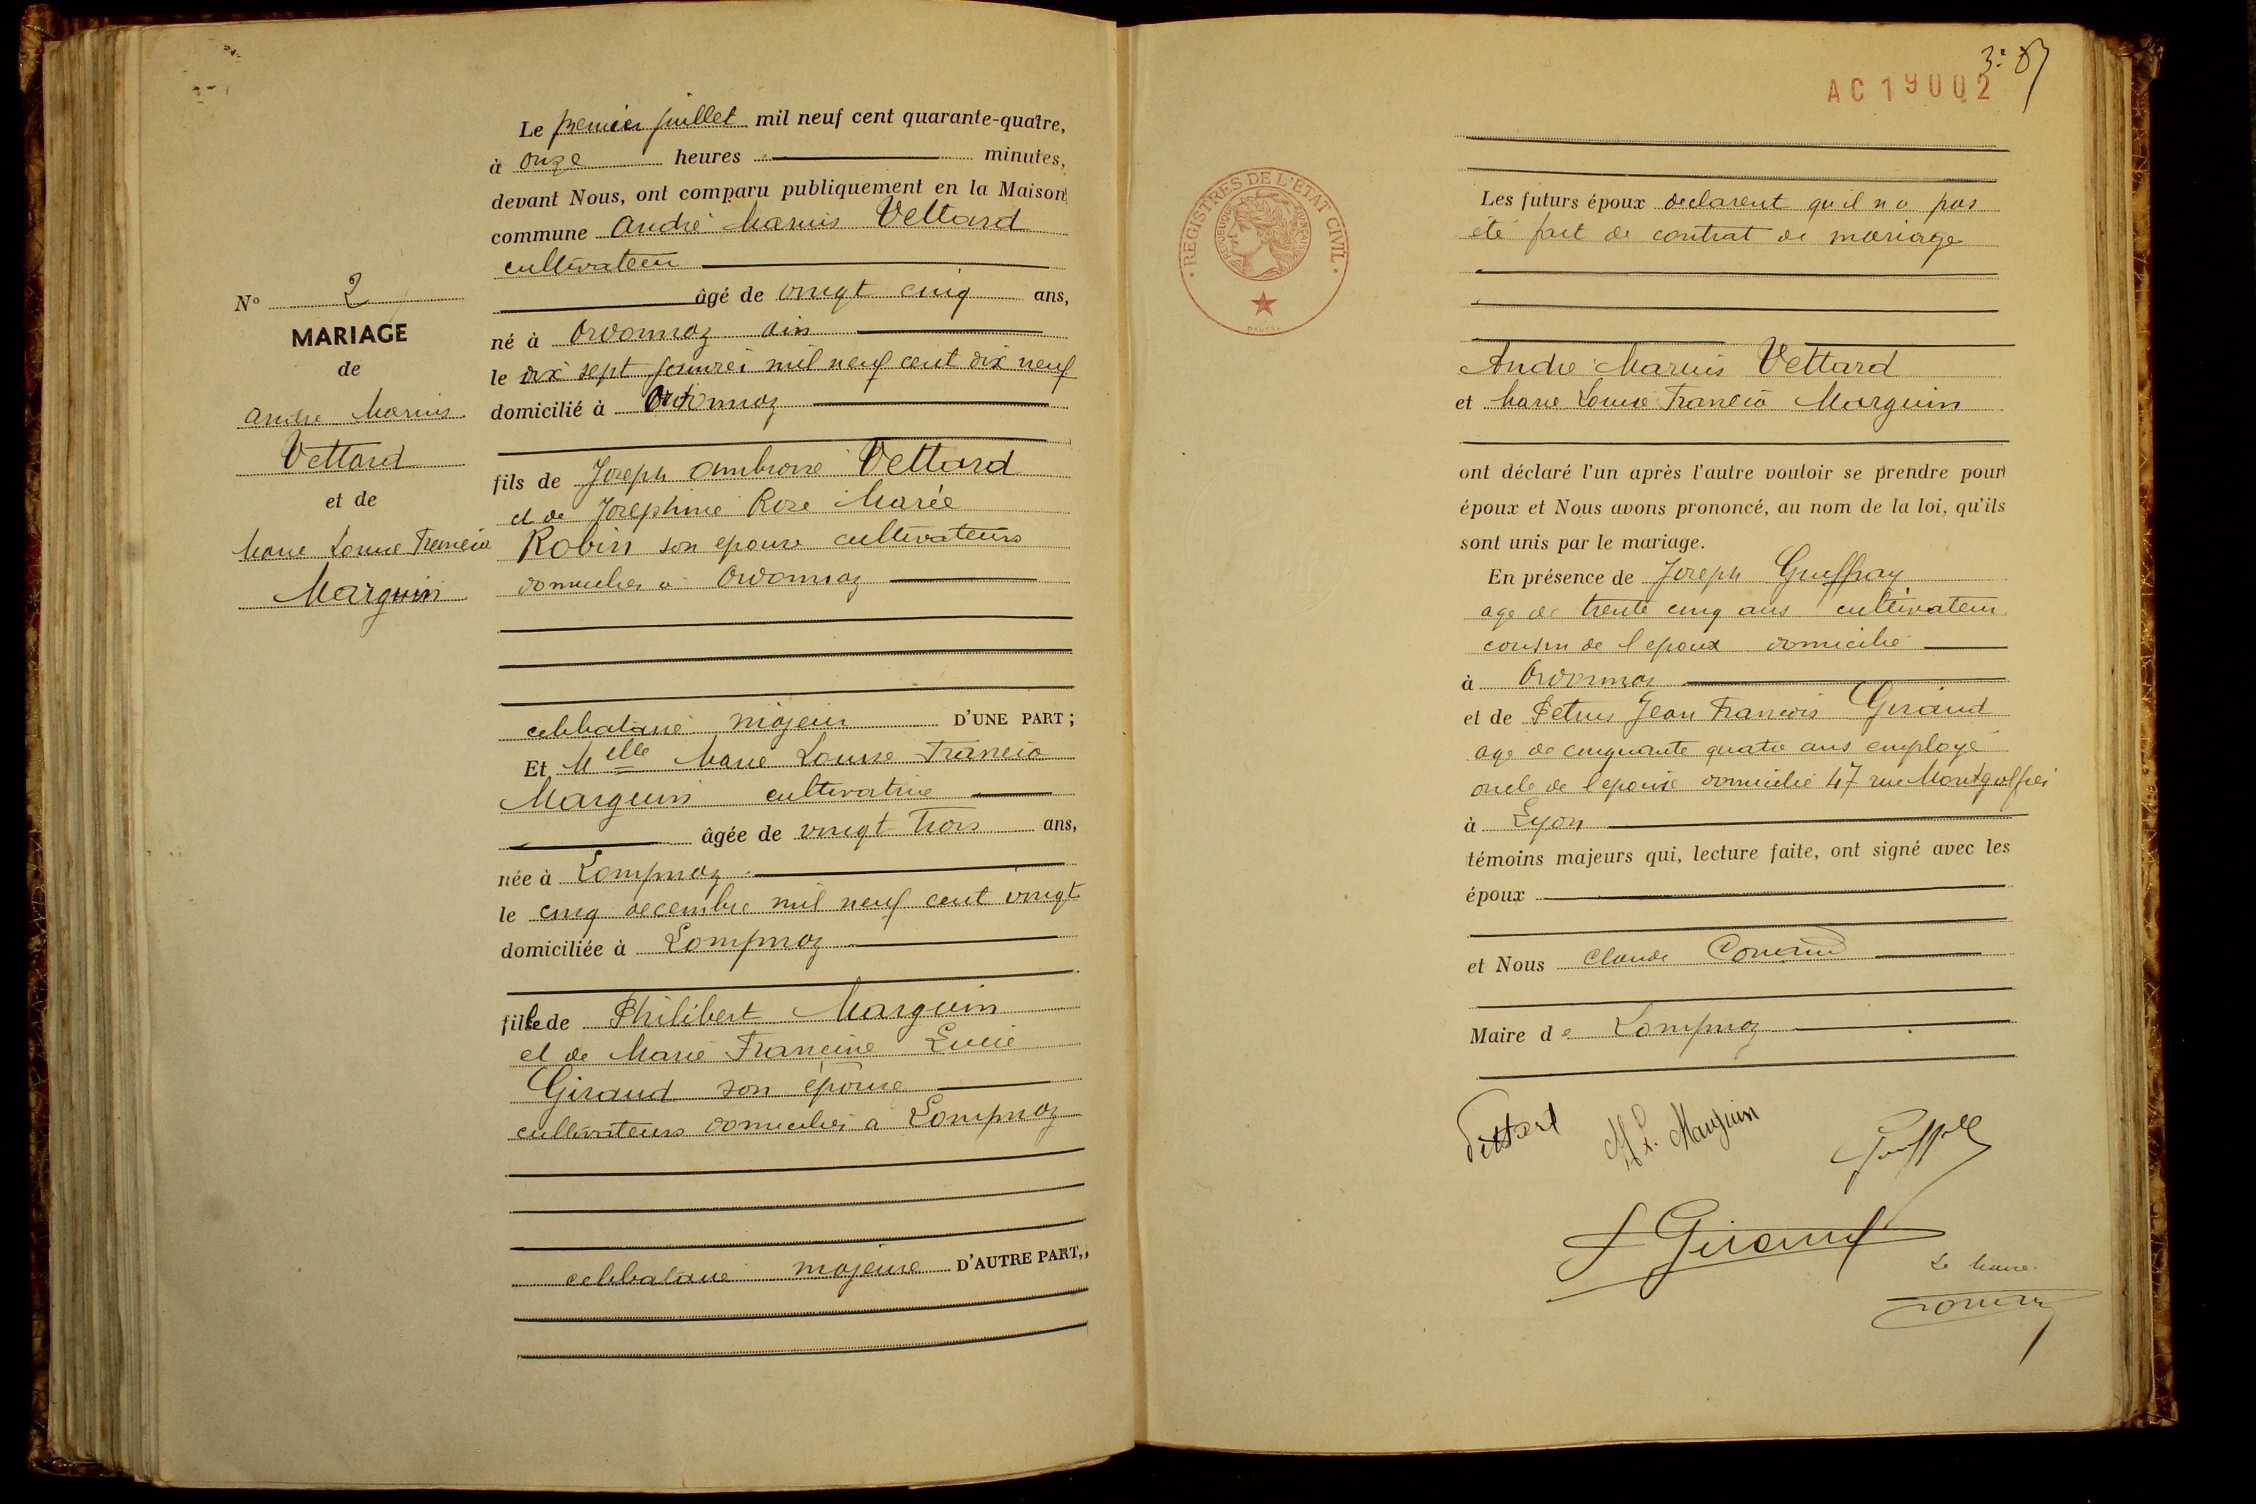 Le premier juillet mil neuf cent quarante-quatre,
à onze heures minutes,
devant Nous, ont comparu publiquement en la Maison
commune André Marius Vettard
cultivateur
âgé de vingt cinq ans,
né à Ordonnaz Ain
le dix sept janvier mil neuf cent dix neuf
domicilié à Ordonnaz
fils de Joseph Ambroise Vettard
et de Joséphine Rose Marie
Robin son epouse cultivateurs
domiciliés à Ordonnaz
celibataire majeur D'UNE PART;
Et Melle Marie Louise Francia
Marguin cultivatrice
âgée de vingt trois ans,
née à Lompnaz
le cinq decembre mil neuf cent vingt
domiciliée à Lompnaz
fille de Philibert Marguin
et de Marie Francine Lucie
Giraud son épouse
cultivateurs domiciliés à Lompnaz
celibataire majeure D'AUTRE PART,
N° 2
MARIAGE
de
André Marius
Vettard
et de
Marie Louise Francia
Marguin
AC 19002
REGISTRES DE L'ETAT CIVIL
Les futurs époux declarent qu'il n'a pas
été fait de contrat de mariage
André Marius Vettard
et Marie Louise Francia Marguin
ont déclaré l'un après l'autre vouloir se prendre pour
époux et Nous avons prononcé, au nom de la loi, qu'ils
sont unis par le mariage.
En présence de Joseph Gueffray
age de trente cinq ans cultivateur
cousin de l'epoux domicilié
à Ordonnaz
et de Petrus Jean François Giraud
age de cinquante quatre ans employé
oncle de l'epouse domicilié 47 rue Montgolfier
à Lyon
témoins majeurs qui, lecture faite, ont signé avec les
époux
et Nous Claude
Maire de Lompnaz
Vettard
M L. Marguin
Giraud
Le Maire